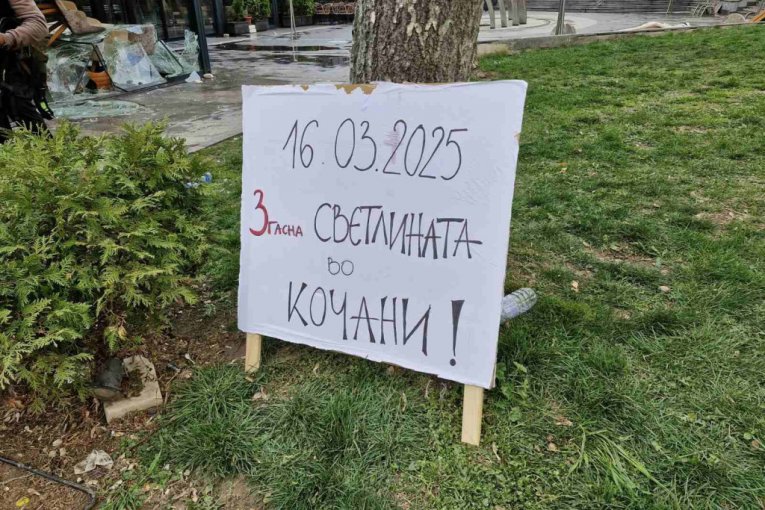 16.03.2025
Згасна СВЕТЛИНАТА
во
КОЧАНИ!